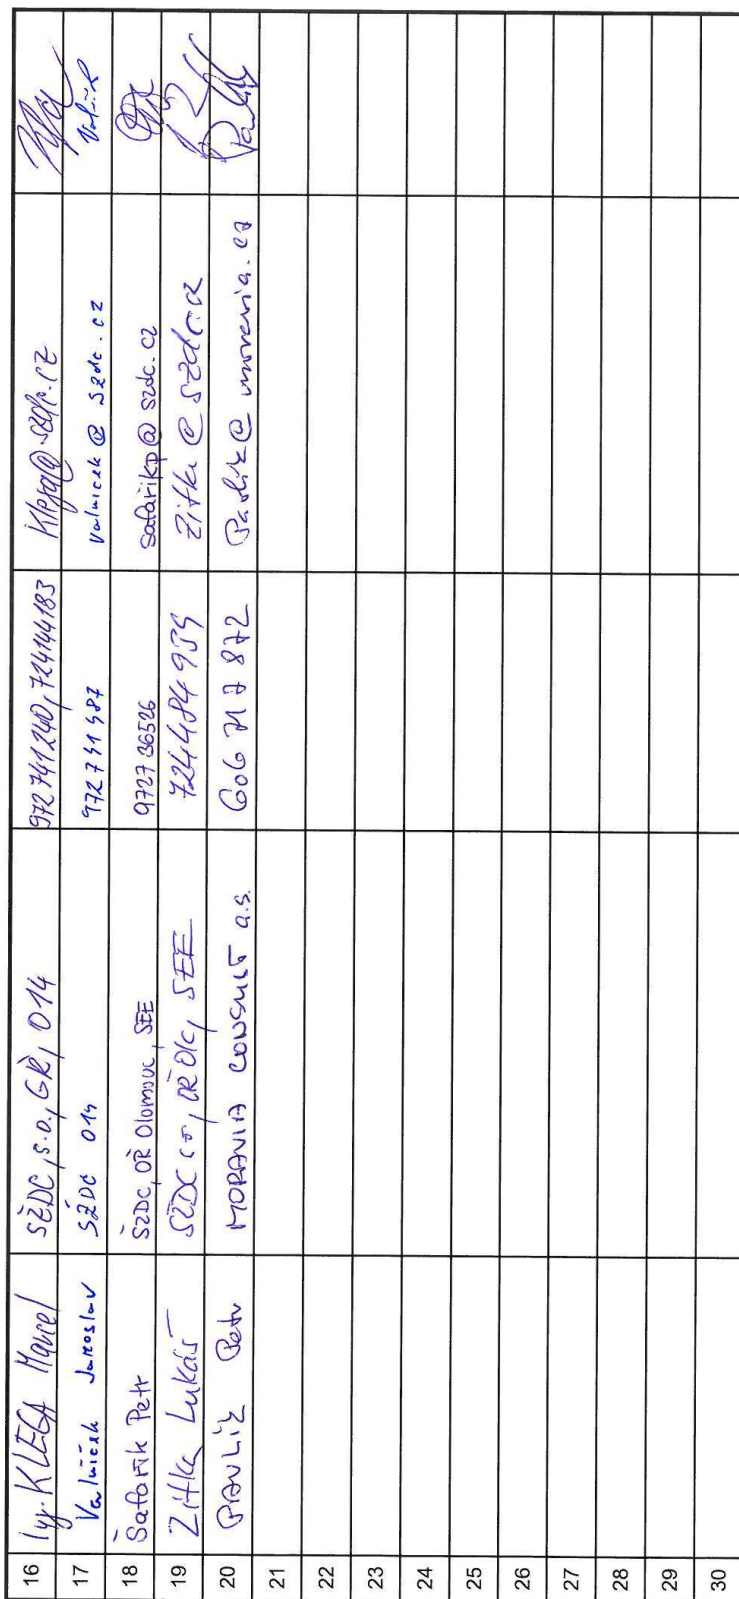 16 Ing. KLEGA Marcel SŽDC, s.o., GŘ, O14 972 741 240, 724144183 Klega@szdc.cz
17 Valníček Jaroslav SŽDC 014 972741587 Valnicek@szdc.cz
18 Šafařík Petr SŽDC, OŘ Olomouc, SEE 9727 36526 safarikp@szdc.cz
19 Zitka Lukáš SŽDC s.o, OŘ Olc, SEE 724484939 Zitka@szdc.cz
20 PAVLÍK Petr MORAVIA CONSULT a.s. 606 717 872 Pavlik@moravia.cz
21
22
23
24
25
26
27
28
29
30